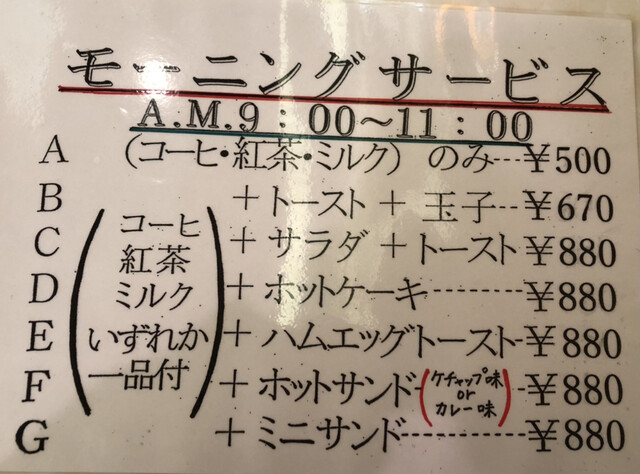 モーニングサービス
A.M.9：00～11：00
A (コーヒ・紅茶・ミルク) のみ---￥500
B ＋トースト＋玉子--￥670
C ＋サラダ＋トースト￥880
D ＋ホットケーキ--------￥880
E ＋ハムエッグトースト-￥880
F ＋ホットサンド-(ケチャップ味 or カレー味)-￥880
G ＋ミニサンド--------￥880
(コーヒ
紅茶
ミルク
いずれか
一品付)